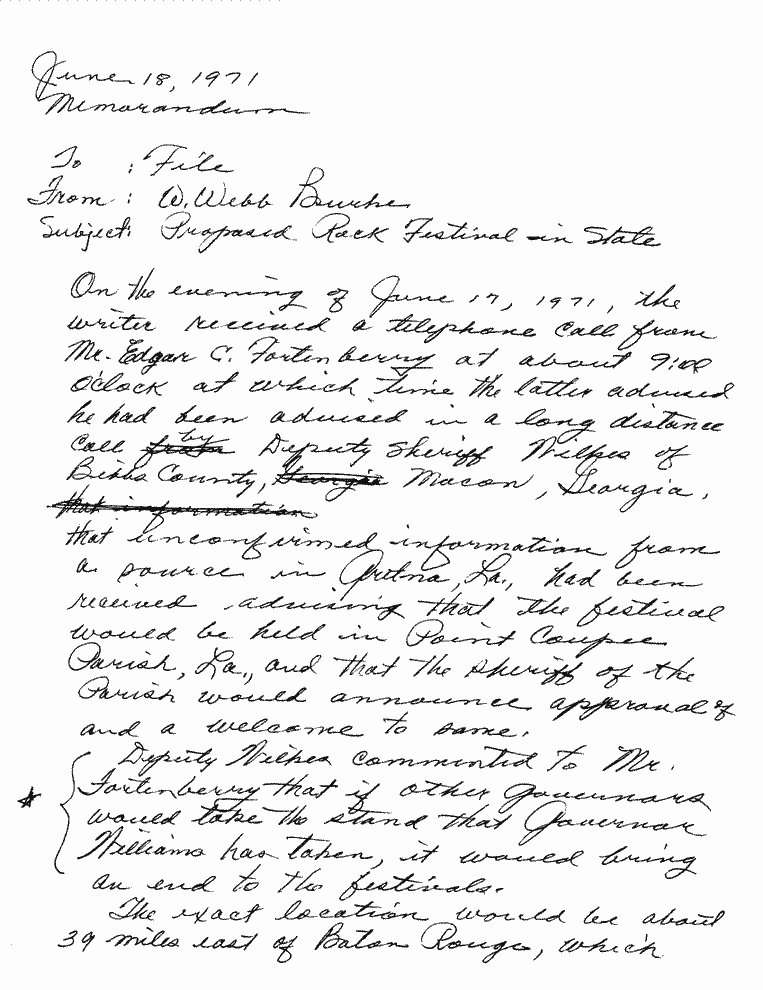 June 18, 1971
Memorandum
To : File
From : W. Webb Burke
Subject: Proposed Rock Festival in State
On the evening of June 17, 1971, the
writer received a telephone call from
Mr. Edgar C. Fortenberry at about 9:00
O'clock at which time the latter advised
he had been advised in a long distance
call from by Deputy Sheriff Wilkes of
Bibbs County, Georgia Macon, Georgia,
that information
that unconfirmed information from
a source in Gretna, La., had been
received advising that the festival
would be held in Point Coupee
Parish, La., and that the sheriff of the
Parish would announce approval of
and a welcome to same.
Deputy Wilkes commented to Mr.
Fortenberry that if other Governors
would take the stand that Governor
Williams has taken, it would bring
an end to the festivals.
The exact location would be about
39 miles east of Baton Rouge, which